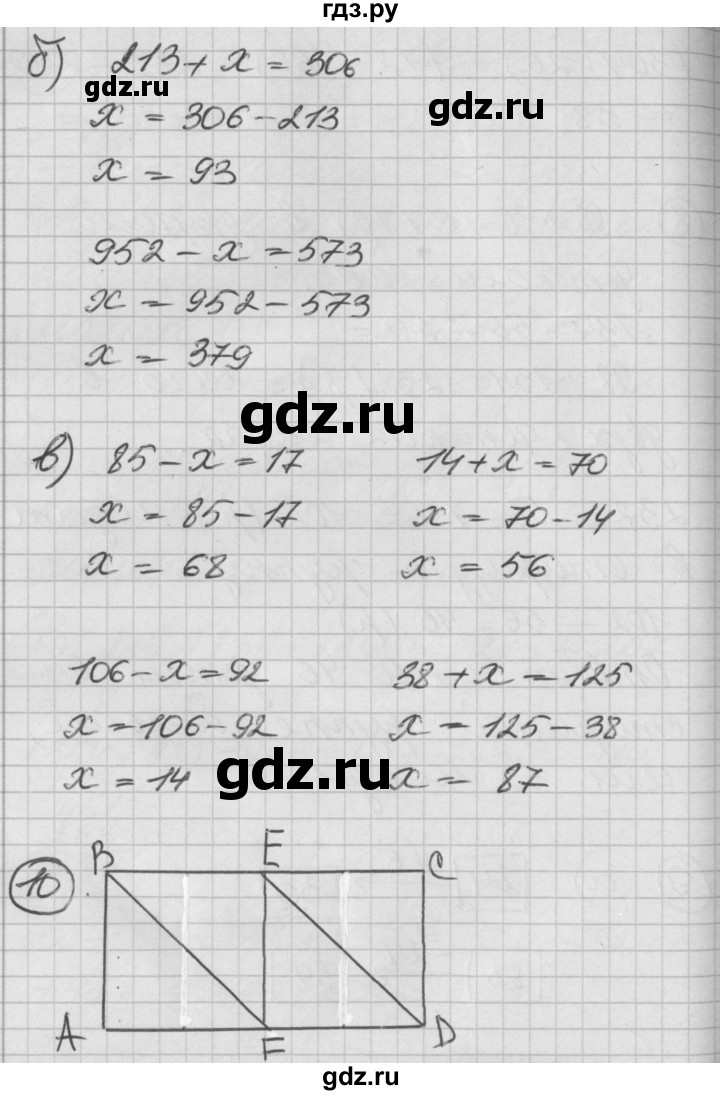 гдз.ру
б) 213 + x = 306
gdz.ru
x = 306 - 213
gdz.ru
x = 93
952 - x = 573
x = 952 - 573
x = 379
gdz.ru
в) 85 - x = 17 14 + x = 70
x = 85 - 17 x = 70 - 14
x = 68 x = 56
106 - x = 92 38 + x = 125
x = 106 - 92 x = 125 - 38
x = 14 x = 87
gdz.ru
10
B E C
A F D
gdz.ru